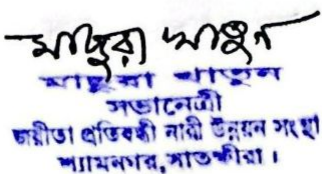 মাছুরা খাতুন
মাছুরা খাতুন
সভানেত্রী
জয়ীতা প্রতিবন্ধী নারী উন্নয়ন সংস্থা
শ্যামনগর, সাতক্ষীরা।